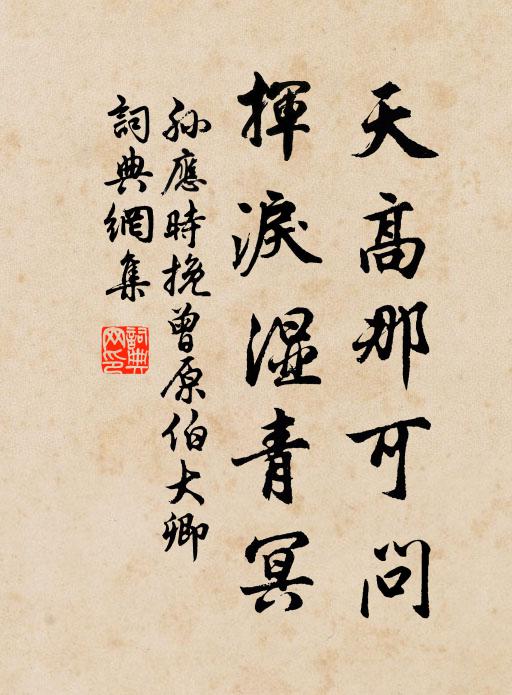 天高那可問
揮淚湿青冥
孫應時挽曾原伯大卿
詞典網集
詞典网印